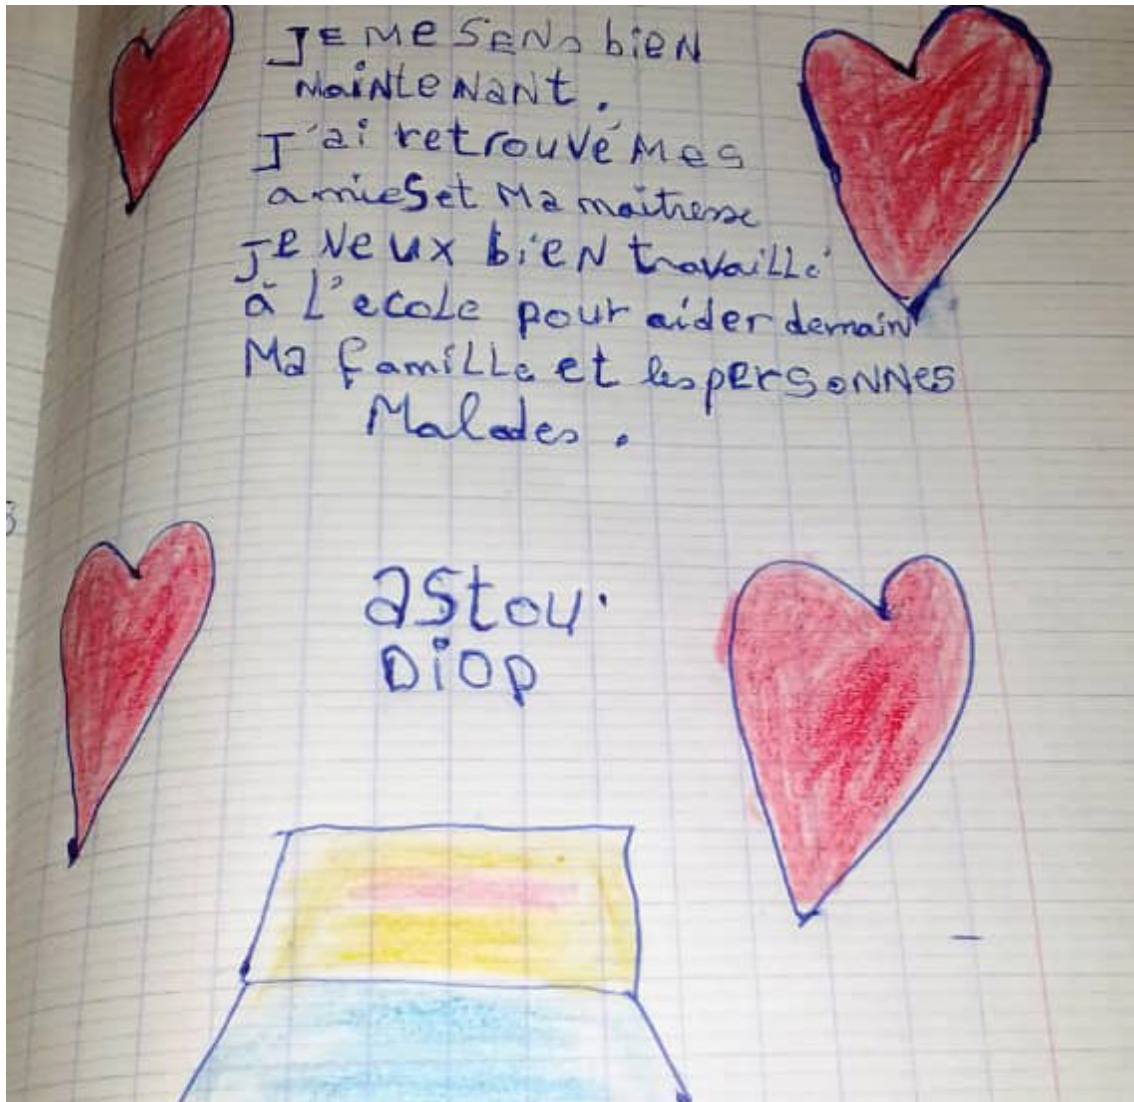 JE ME SENS biEN
MaiNteNaNt.
J'ai retrouvé Mes
amies et Ma maitresse
je veux biEN travaillé
à L'ecole pour aider demain
Ma famiLLe et les persoNNes
Malades.
astou
Diop